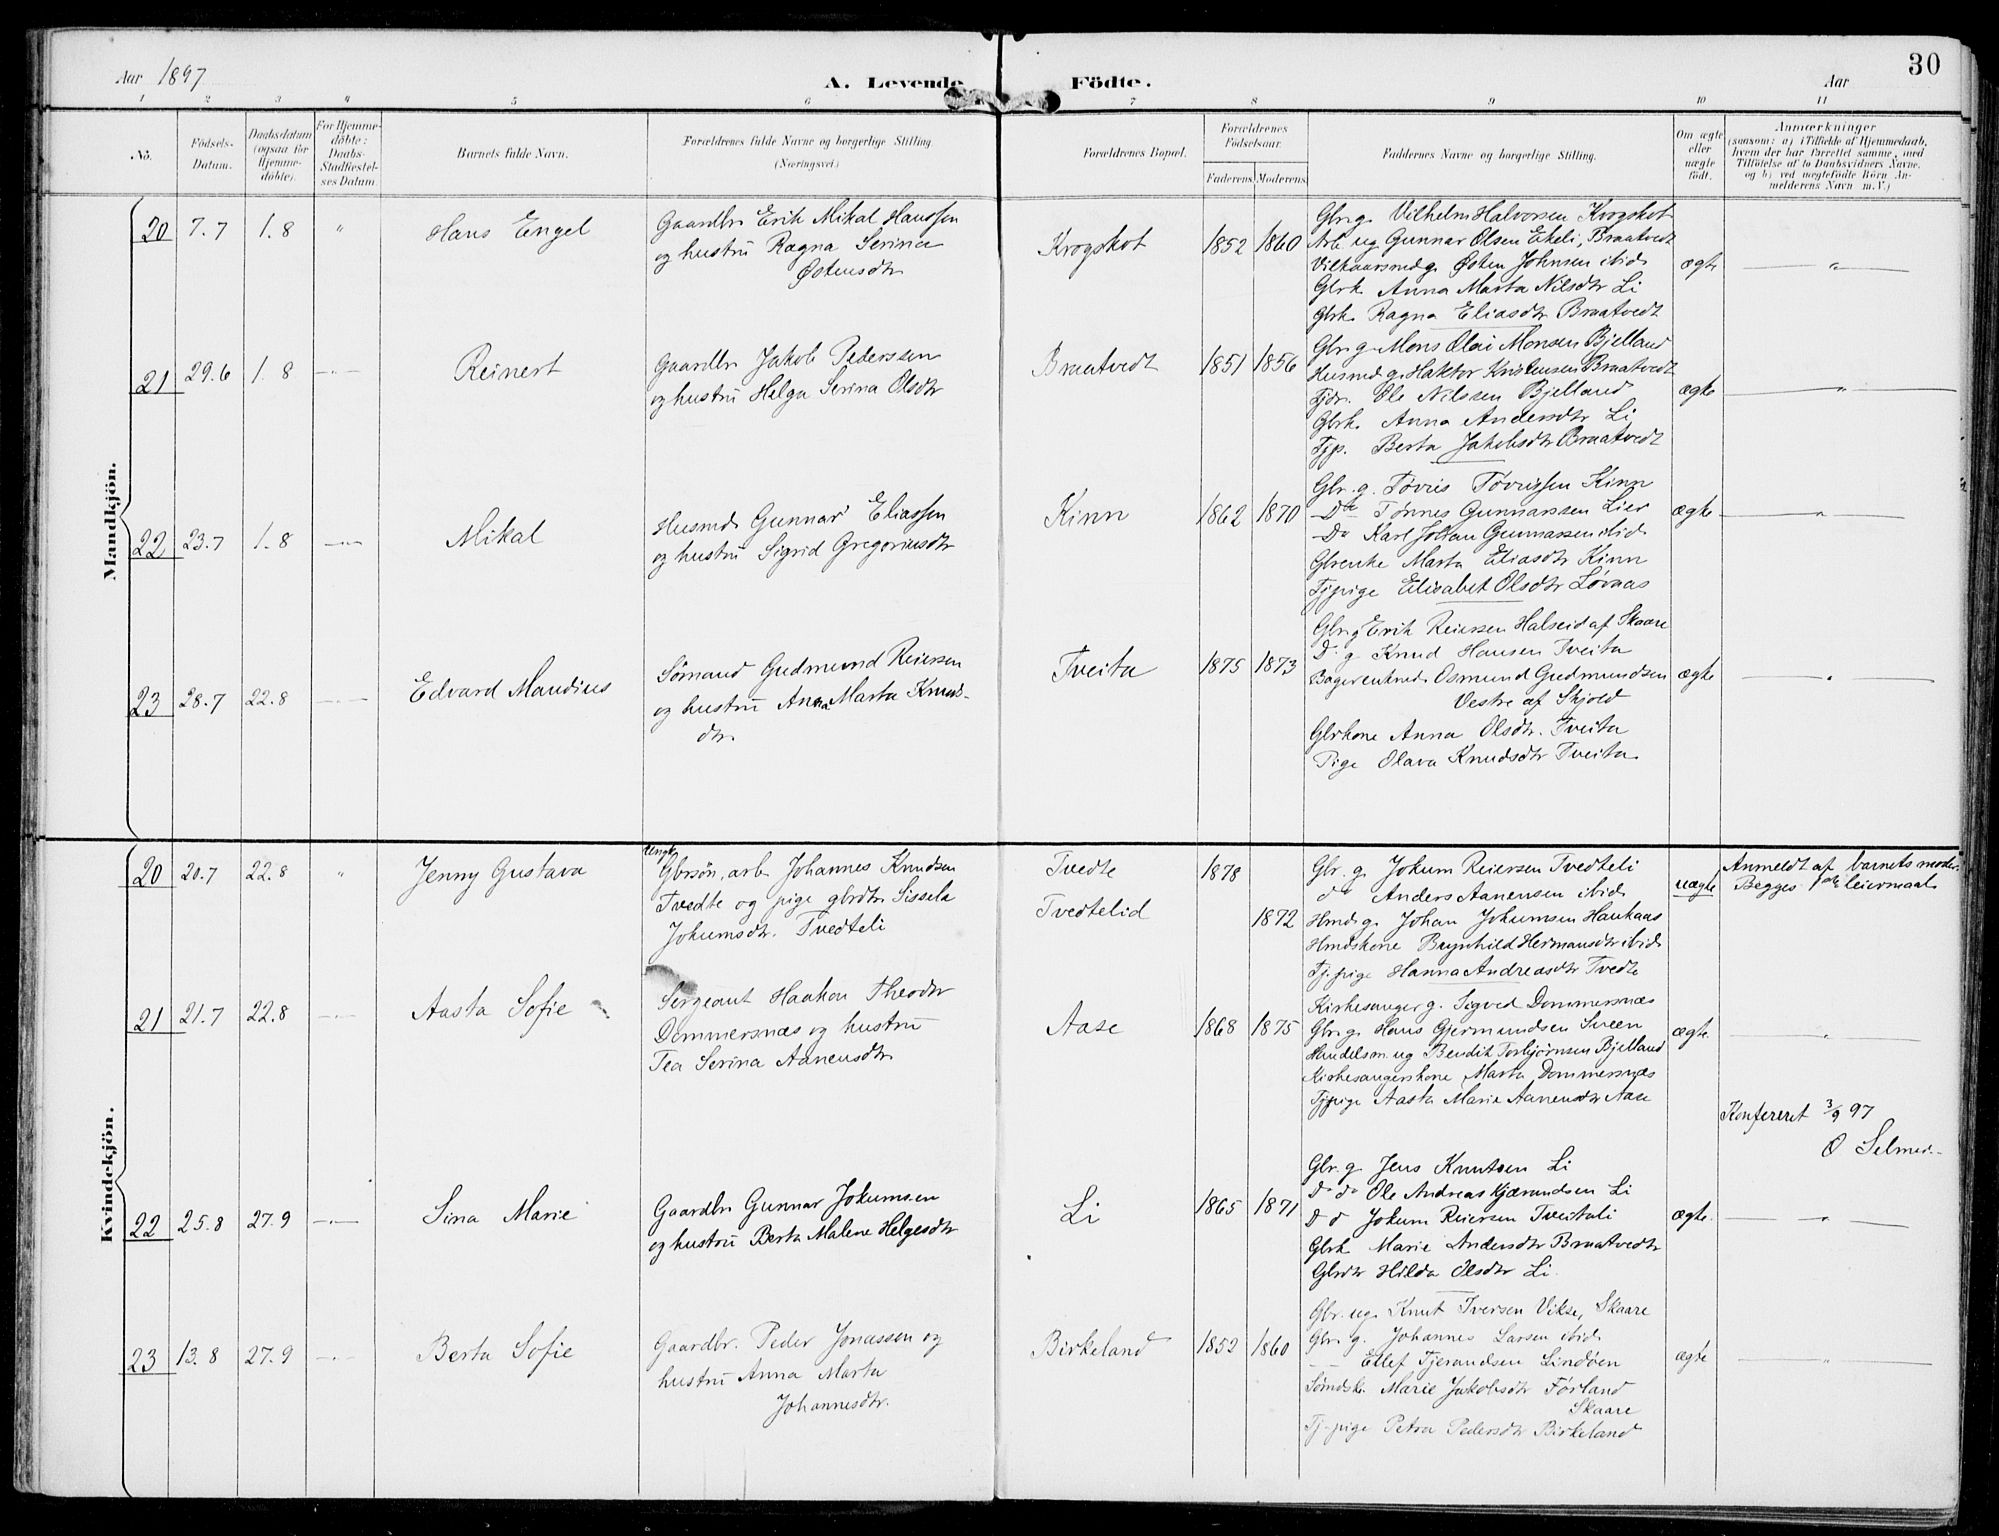 30
Aar 1897
A. Levende Födte.
Aar
1 2 3 4 5 6 7 8 9 10 11
No.
Födsels-Datum.
Daabsdatum (ogsaa for Hjemme-döbte).
For Hjemme-döbte: Daabs-Stadfæstel-ses Datum.
Barnets fulde Navn.
Forældrenes fulde Navne og borgerlige Stilling. (Næringsvei.)
Forældrenes Bopæl.
Forældrenes Födselsaar.
Faderens Moderens
Faddernes Navne og borgerlige Stilling.
Om ægte eller uægte födt.
Anmærkninger
(saasom: a) i Tilfælde af Hjemmedaab, hvem der har forrettet samme, med Tilföielse af to Daabsvidners Navne, og b) ved uægtefödte Börn An-melderens Navn m.V.)
Mandkjön.
20 7.7 1.8 " Hans Engel
Gaardbr Erik Mikal Hanssen
og hustru Ragna Serina
Østensdtr
Krogskot 1852 1860
Gbr. g. Vilhelm Halvorsen Krogskot
Arb ug Gunnar Olsen Ekeli, Braatvedt
Vilkaarsmd g. Østen Johnsen ibid
Gbrk Anna Marta Nilsdtr Li
Gbrk. Ragna Eliasdtr Braatvedt
ægte "
21 29.6 1.8 -"- Reinert
Gaardbr Jakob Pedersen
og hustru Helga Serina Olsdtr
Braatvedt 1851 1856
Gbr. g. Mons Olai Monsen Bjelland
Husmd g. Haktor Kristensen Braatvedt
Tjdr. Ole Nilssen Bjelland
Gbrk Anna Andersdtr Li
Tjp. Berta Jakobsdtr Braatvedt
ægte "
22 23.7 1.8 -"- Mikal
Husmd Gunnar Eliassen
og hustru Sigrid Gregoriusdtr
Kinn 1862 1870
Gbr. g. Tøvris Tøvrissen Kinn
Do Tønnes Gunnarssen Lier
Do Karl Johan Gunnarssen ibid
Gbrenke Marta Eliasdtr Kinn
Tjpige Elisabet Olsdtr Løvaas
ægte "
23 28.7 22.8 -"- Edvard Mandius
Sømand Gudmund Reiersen
og hustru Anna Marta Knuds-
dtr.
Tveita 1875 1873
Gbr. g Erik Reiersen Halseid af Skaare
D. g Knud Hansen Tveita
Osmund Gudmundsen
Vestre af Skjold
Gbrkone Anna Olsdtr. Tveita
Pige Olava Knudsdtr Tveita
ægte "
Kvindekjön.
20 20.7 22.8 " Jenny Gustava
ungk
Gbrsøn, arb. Johannes Knudsen
Tvedte og pige gbrdtr Sissela
Jokumsdtr. Tvedteli
Tvedte 1878
Tvedtelid 1872
Gbr. g. Jokum Reiersen Tvedteli
do Anders Aanensen ibid
Hmd g. Johan Jokumsen Haukaas
Hmdskone Brynhild Hermansdtr ibid
Tj.pige Hanna Andreasdtr Tvedte
uægte
Anmeldt af barnets moder.
Begges 1ste leiermaal
21 21.7 22.8 -"- Aasta Sofie
Sergeant Haakon Theodor
Dommersnæs og hustru
Tea Serina Aanensdtr
Aase 1868 1875
Kirkesanger g. Sigved Dommersnæs
Gbr. g. Hans Gjermundsen Sveen
Handelsm. ug Bendik Torbjørnsen Bjelland
Kirkesangerkone Marta Dommersnæs
Tjpige Aasta Marie Aanensdtr Aase
ægte. "
Konfereret 3/9 97
O Selmer
22 25.8 27.9 -"- Sina Marie
Gaardbr Gunnar Jokumsen
og hustru Berta Malene Helgesdtr
Li 1865 1871
Gbr. g. Jens Knutsen Li
D do Ole Andreas Kjærandsen Li
D d Jokum Reiersen Tveitali
Gbrk Marie Andersdtr Braatvedt
Gbrdtr Hilda Olsdtr Li.
ægte. "
23 13.8 27.9 -"- Berta Sofie
Gaardbr. Peder Jonassen og
hustru Anna Marta
Johannesdtr.
Birkeland 1852 1860
Gbr. ug. Knut Iversen Vikse, Skaare
Gbr. g. Johannes Larsen ibid
— Ellef Tjerandsen Lindøen
Sømdsk. Marie Jakobsdtr Førland
Skaare
Tj-pige Petra Pedersdtr Birkeland
ægte "